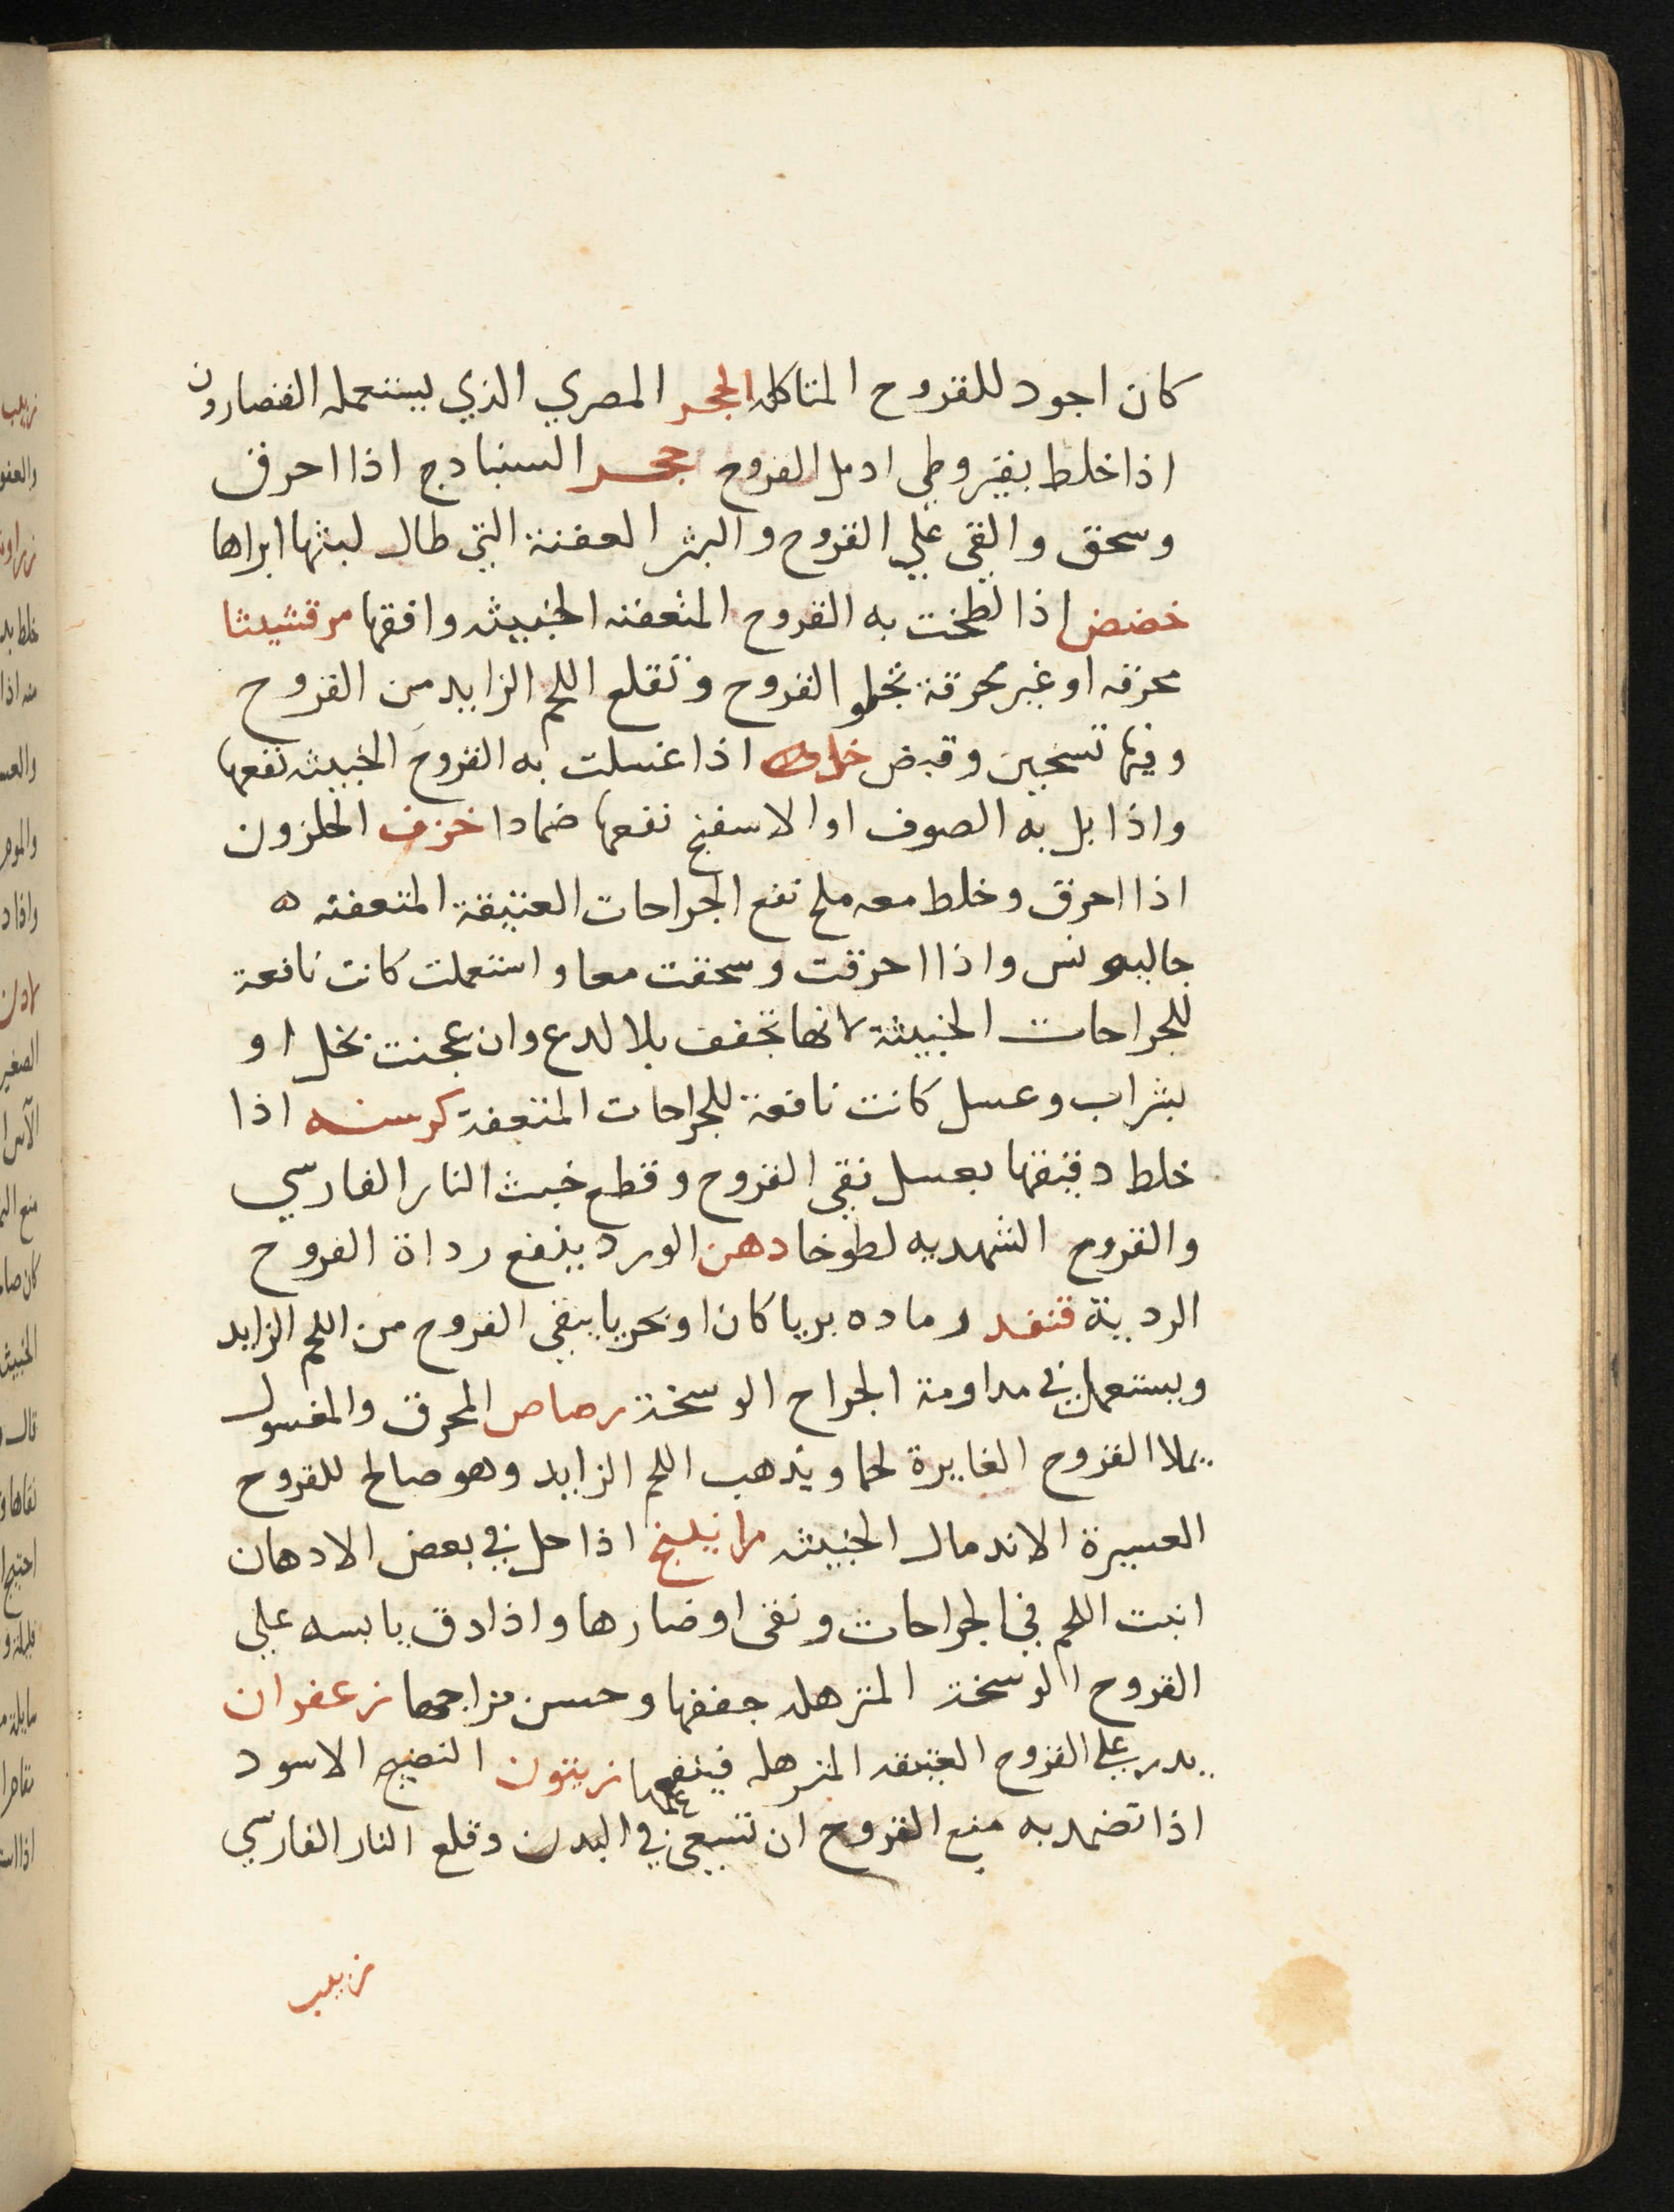 كان اجود للقروح المتاكله الحجر المصري الذي يستعمله القصارون
اذا خلط بقيروطي ادمل القروح حجر السنبادج اذا احرق
وسحق والقي علي القروح والبثر العفنة التي طال لبثها ابراها
خضض اذا لطخت به القروح المتعفنه الخبيثه وافقها مرقشيثا
محرقه او غير محرقة تجلو القروح وتقلع اللحم الزايد من القروح
وفيها تسخين وقبض خل اذا غسلت به القروح الخبيثه نفعها
واذا بل به الصوف او الاسفنج نفعها ضمادا خزف الحلزون
اذا احرق وخلط معه ملح نفع الجراحات العتيقة المتعفنه ه
جالينوس واذا احرقت وسحقت معا واستعملت كانت نافعة
للجراحات الخبيثة لانها تجفف بلا لدع وان عجنت بخل او
بشراب وعسل كانت نافعة للجراحات المتعفنة كرسنه اذا
خلط دقيقها بعسل نقي القروح وقطع خبث النار الفارسي
والقروح الشهديه لطوخا دهن الورد ينفع رداة القروح
الردية قنفد رماده بريا كان او بحريا ينقي القروح من اللحم الزايد
ويستعمل في مداومة الجراح الوسخة رصاص المحرق والمغسول
يملا القروح الغايرة لحما ويذهب اللحم الزايد وهو صالح للقروح
العسيرة الاندمال الخبيثه راتينج اذا حل في بعض الادهان
انبت اللحم في الجراحات ونقي اوضارها واذا دق يابسه علي
القروح الوسخة المترهله جففها وحسن مزاجها زعفران
يدر علي القروح العتيقه المترهله فينفعها زيتون النضيج الاسود
اذا تضمد به منع القروح ان تسعي في البدن وقلع النار الفارسي
زبيب